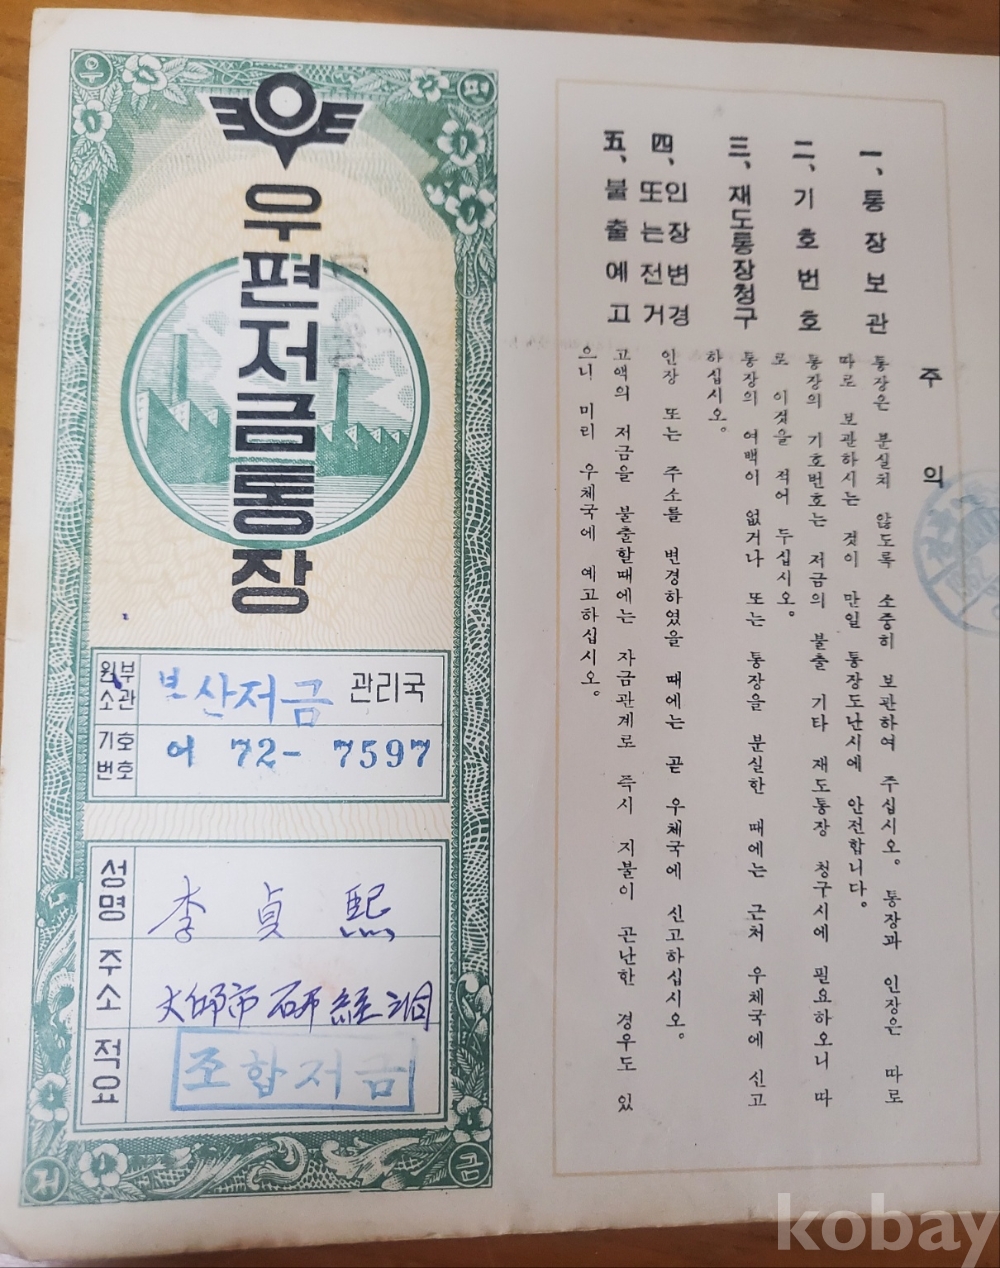 우
편
우편저금통장
원부
소관
부산저금 관리국
기호
번호
어 72- 7597
성명
李貞熙
주소
大邱市 研経洞
적요
조합저금
저
금
주의
一、통장보관
통장은 분실치 않도록 소중히 보관하여 주십시오。 통장과 인장은 따로
따로 보관하시는 것이 만일 통장도난시에 안전합니다。
二、기호번호
통장의 기호번호는 저금의 불출 기타 재도통장 청구시에 필요하오니 따
로 이것을 적어 두십시오。
三、재도통장청구
통장의 여백이 없거나 또는 통장을 분실한 때에는 근처 우체국에 신고
하십시오。
四、인장변경
또는전거
인장 또는 주소를 변경하였을 때에는 곧 우체국에 신고하십시오。
五、불출예고
고액의 저금을 불출할때에는 자금관계로 즉시 지불이 곤난한 경우도 있
으니 미리 우체국에 예고하십시오。
kobay